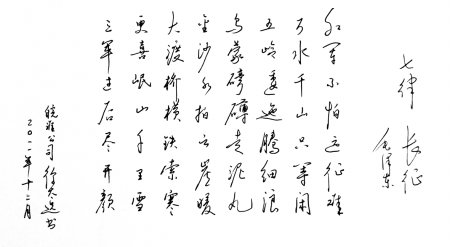 七律 长征
毛泽东
红军不怕远征难
万水千山只等闲
五岭逶迤腾细浪
乌蒙磅礴走泥丸
金沙水拍云崖暖
大渡桥横铁索寒
更喜岷山千里雪
三军过后尽开颜
公司 徐 书
二〇一一年十二月